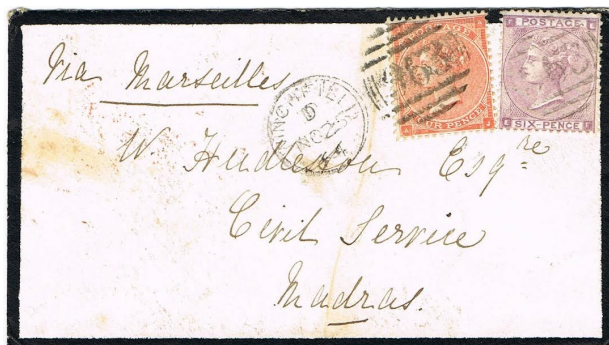 Via Marseilles
POSTAGE
SIX-PENCE
D
NO 25
W. Hudleston Esqre
Civil Service
Madras.